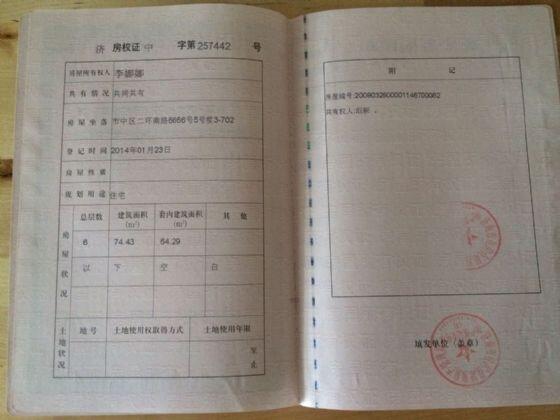 济 房权证 中 字第 257442 号
房屋所有权人 李娜娜
共有情况 共同共有
房屋坐落 市中区二环南路6666号5号楼3-702
登记时间 2014年01月23日
房屋性质
规划用途 住宅
房屋状况 总层数 建筑面积(m²) 套内建筑面积(m²) 其他
6 74.43 64.29
以 下 空 白
土地状况 地号 土地使用权取得方式 土地使用年限
至
止
附 记
房屋编号:2009032600001146700062
共有权人:
填发单位（盖章）